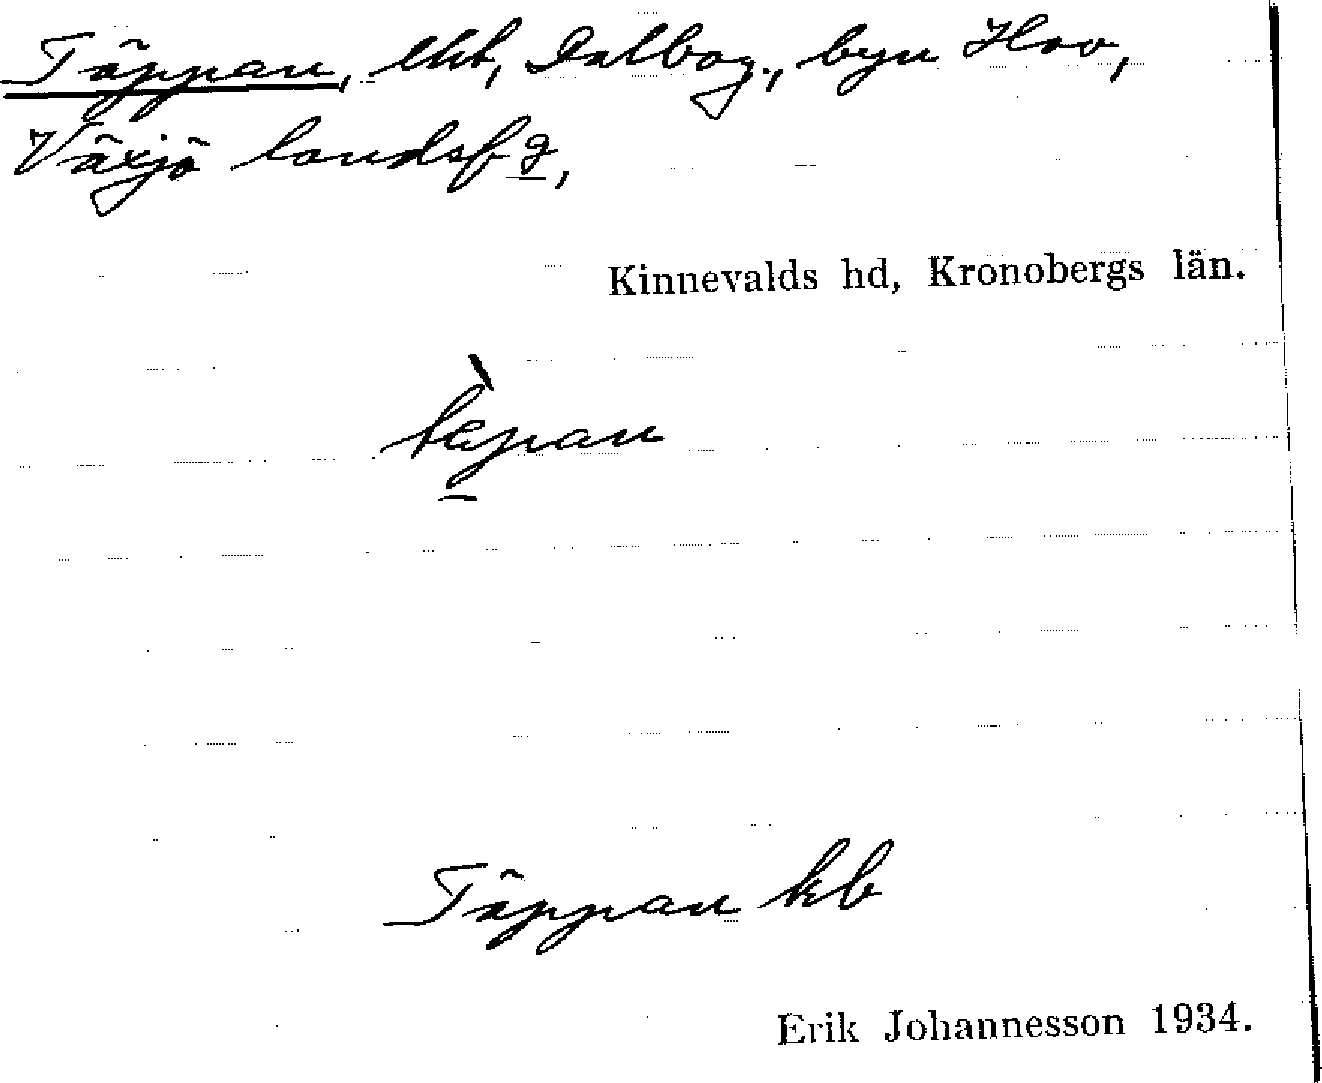 Täppan, lht, Dalbog., byn Hov,
Växjö landsf g,
Kinnevalds hd, Kronobergs län.
tæpan
Täppan kb
Erik Johannesson 1934.